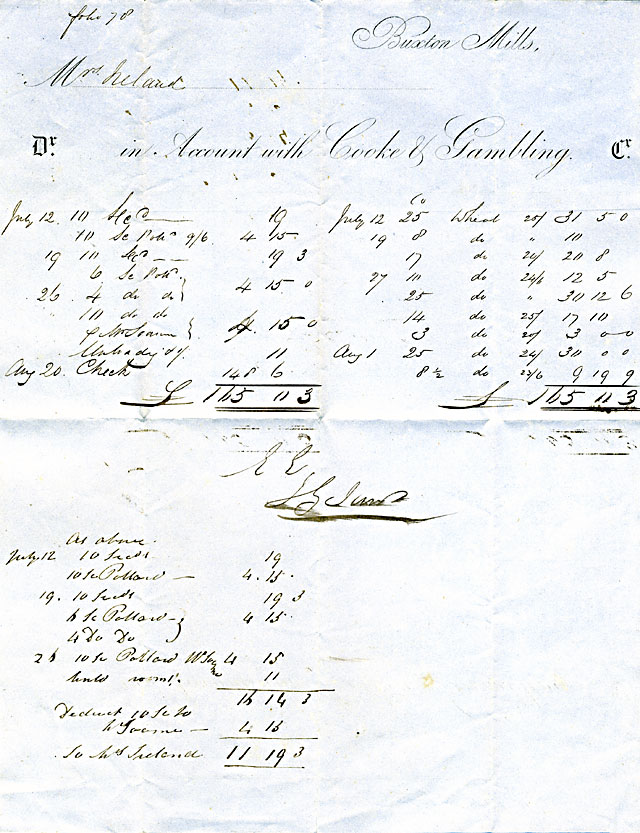 folio 78
Buxton Mills,
Mrs Ireland
Dr. in Account with Cooke & Gambling. Cr.
July 12 10 19
10 Sc Poll. 9/6 4 15
19 10 19 3
6 Sc Poll.
26 4 do do 4 15 0
10 do do
15 0
11
Aug 20. Check 148 6
£ 165 11 3
Co
July 12 25 Wheat 25/ 31 5 0
19 8 do " 10
17 do 24/ 20 8
27 10 do 24/6 12 5
25 do " 30 12 6
14 do 25/ 17 10
3 do 20/ 3 0 0
Aug 1 25 do 24/ 30 0 0
8 1/2 do 23/6 9 19 9
£ 165 11 3
As above.
July 12 10 19
10 Sc Pollard 4.15.
19. 10 19 3
6 Sc Pollard 4 15
4 Do Do
26 10 Sc Pollard 4 15
11
16 14 3
Deduct 10 Sc to
4 15
To Mrs Ireland 11 19 3